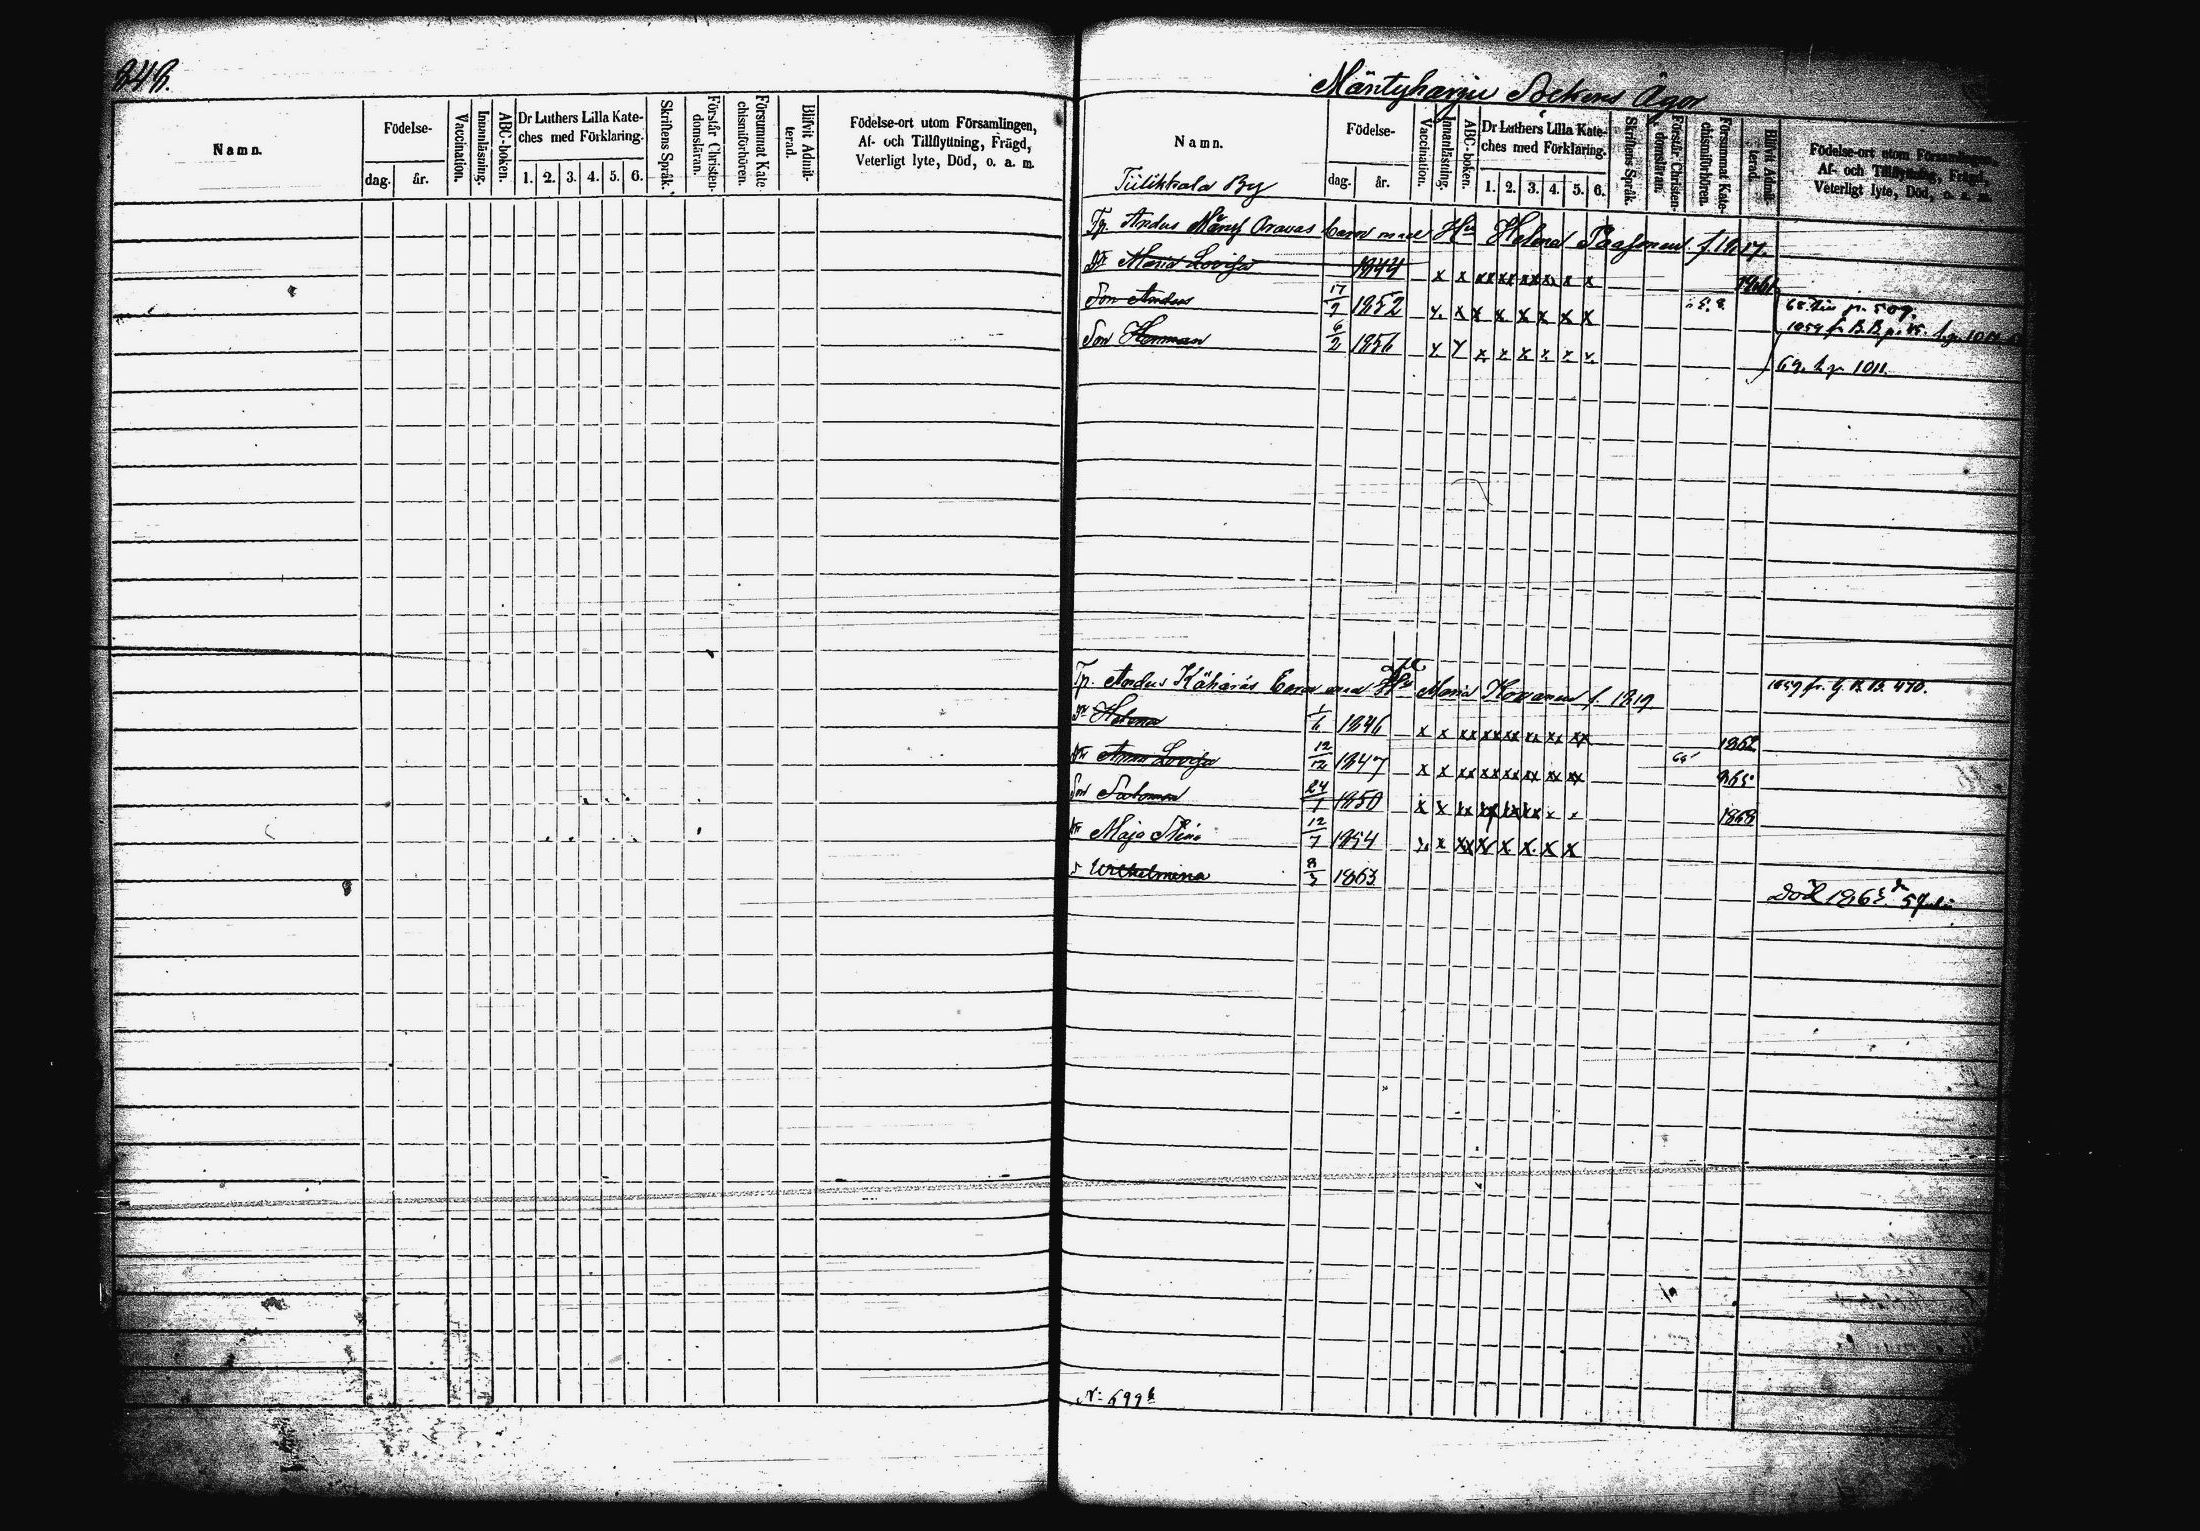 343.
Namn.
Födelse-
dag.
år.
Vaccination.
Innanläsning.
ABC-boken.
Dr Luthers Lilla Kate-
ches med Förklaring.
1. 2. 3. 4. 5. 6.
Skriftens Språk.
Förstår Christen-
domsläran.
Försummat Kate-
chismiförhören.
Blifvit Admit-
terad.
Födelse-ort utom Församlingen,
Af- och Tillflyttning, Frägd,
Veterligt lyte, Död, o. a. m.
Mäntyharju Sockens Ägor
Namn.
Födelse-
dag.
år.
Vaccination.
Innanläsning.
ABC-boken.
Dr Luthers Lilla Kate-
ches med Förklaring.
1. 2. 3. 4. 5. 6.
Skriftens Språk.
Förstår Christen-
domsläran.
Försummat Kate-
chismiförhören.
Blifvit Admit-
terad.
Födelse-ort utom Församlingen,
Af- och Tillflyttning, Frägd,
Veterligt lyte, Död, o. a. m.
Tiilikkala By
Tp. Anders Oravas barn med Hu Helena Paasonen f. 1817.
Dr Maria Lovisa 1844 x x xx xx xx x x x
Son Anders 17/9 1852 x x x x x x x x
Son Herman 6/2 1856 x x x x x x x x
69. h. p. 1011.
Tp. Anders Kähäräs Barn med Hu Maria Korranen f. 1819
Dr Helena 1/6 1846 x x xx xx xx xx xx xx 1862
Dr Anna Lovisa 12/12 1847 x x xx xx xx xx xx xx 1865
Son Salomon 24/1 1850 x x xx xx xx xx x x 1868
Dr Maja Stina 12/7 1854 x x xx x x x x x
Wilhelmina 8/3 1863
Död 1863 d. 5 Juli
N: 699